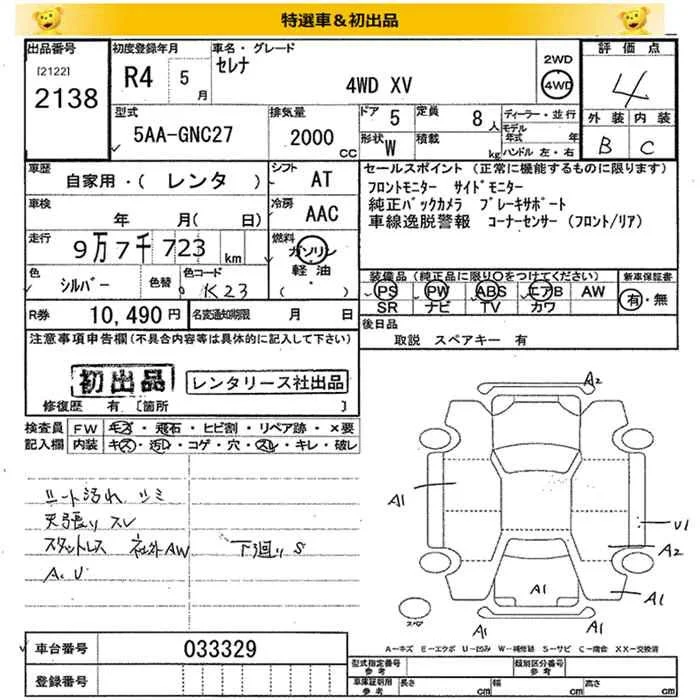 特選車＆初出品
出品番号
[2122]
2138
初度登録年月
R4 5月
車名・グレード
セレナ
4WD XV
2WD
4WD
評価点
4
外装 内装
B C
型式
5AA-GNC27
排気量
2000 CC
ドア 5
定員 8人
形状 W
積載 kg
ディーラー・並行
モデル年式 年
ハンドル 左・右
車歴
自家用・(レンタ)
シフト
AT
車検
年 月(日)
冷房
AAC
走行
9万7千723 km
燃料
ガソリン
軽油
( )
色
シルバー
色替
色コード
K23
R券
10,490円
名変通知期限 月 日
セールスポイント (正常に機能するものに限ります)
フロントモニター サイドモニター
純正バックカメラ ブレーキサポート
車線逸脱警報 コーナーセンサー (フロント/リア)
装備品 (純正品に限り○をつけてください)
PS PW ABS エアB AW
SR ナビ TV カワ
新車保証書
有・無
後日品
取説 スペアキー 有
注意事項申告欄(不具合内容等は具体的に記入して下さい)
初出品
レンタリース社出品
修復歴 有 [箇所 ]
検査員記入欄
FW キズ・飛石・ヒビ割・リペア跡・×要
内装 キズ・汚レ・コゲ・穴・スレ・キレ・破レ
シート汚れ シミ
天張り スレ
スタットレス 社外AW 下廻りS
A.U
A2
A1
U1
A2
A1
A1
A1
A1
スペア
A－キズ E－エクボ U－凹み W－補修跡 S－サビ C－腐食 XX－交換済
車台番号
033329
登録番号
型式指定番号
参考
類別区分番号
参考
車庫証明用
参考
長さ cm
幅 cm
高さ cm